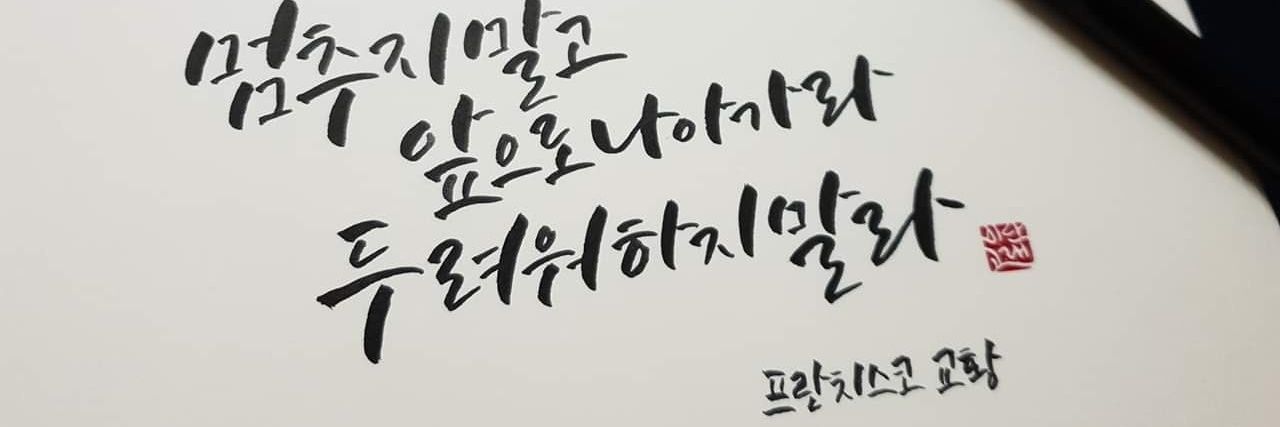 멈추지말고
앞으로나아가라
두려워하지말라
프란치스코 교황